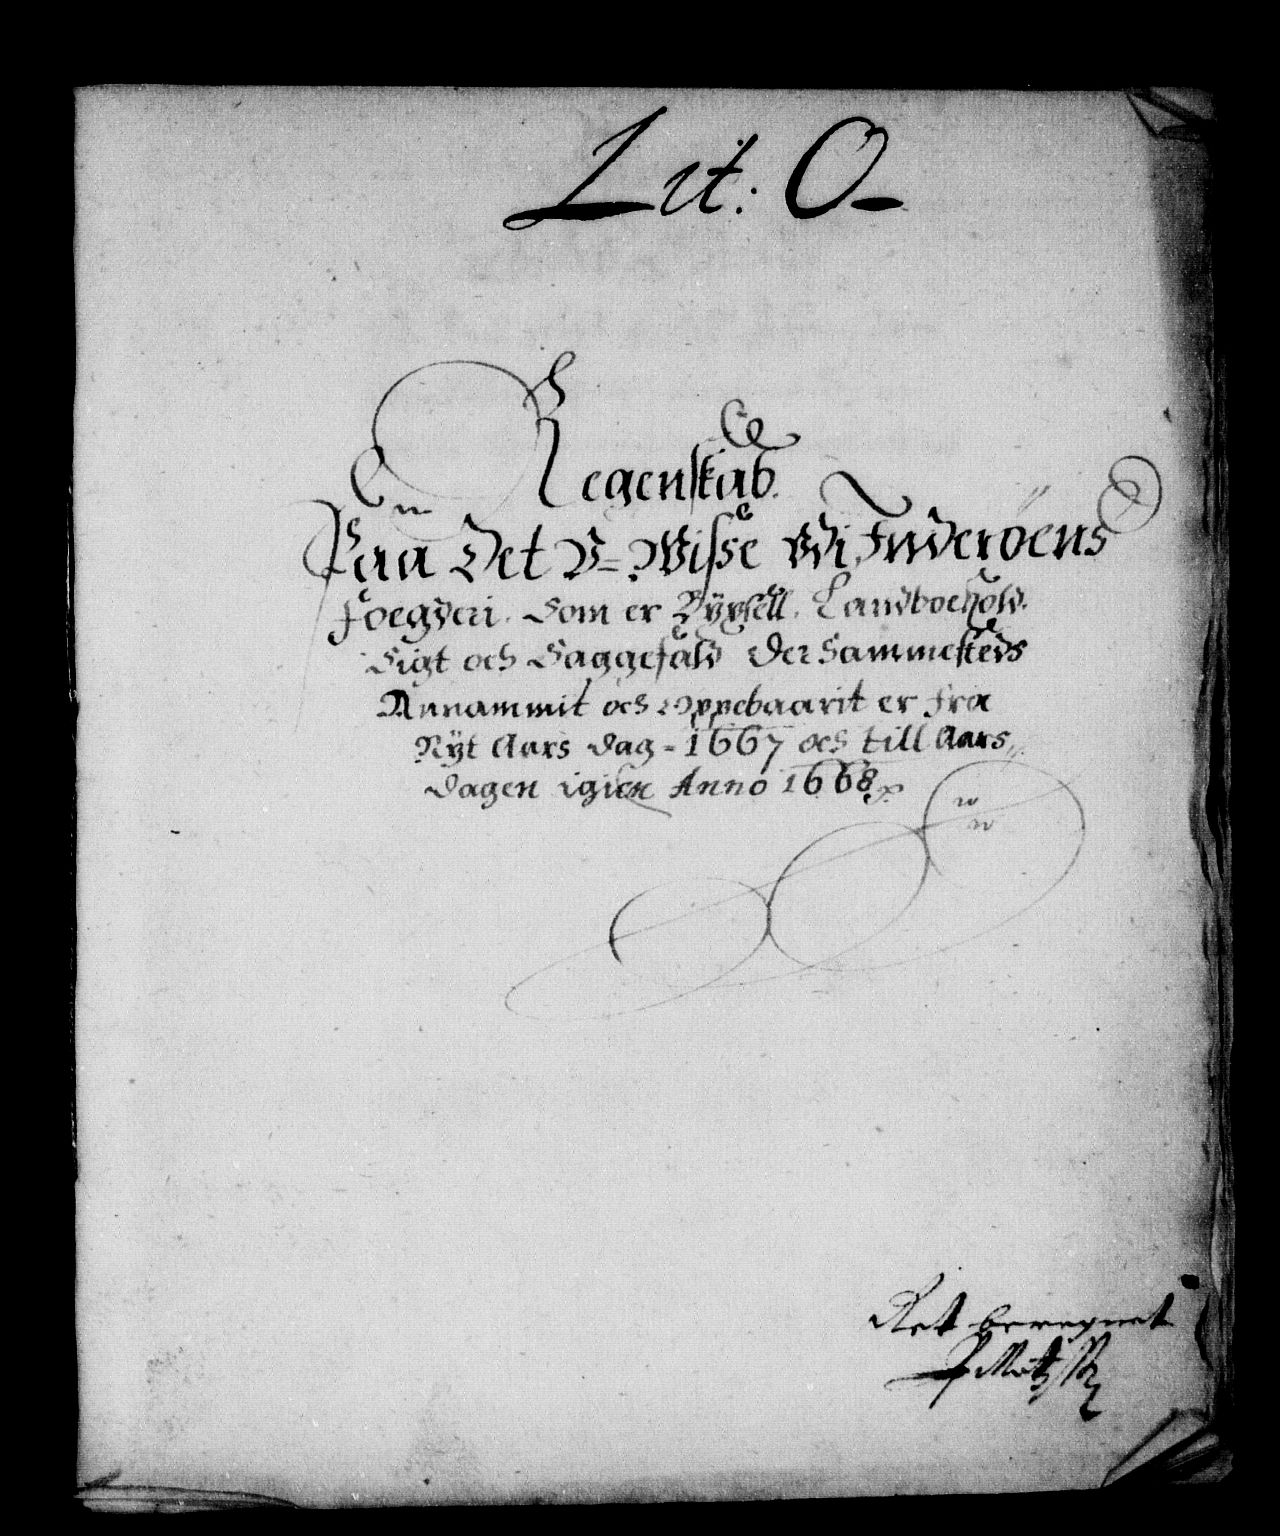 Lit: O
Regenskab
Paa Det U-Wisse Udi Inderøens
Foegderi. Som er Byxsell. Landboehold.
Sigt och Saggefald Der Sammesteds
Annammit och Oppebaarit er fra
Nyt Aars dag - 1667 och till Aars
dagen igien Anno 1668
Ret beregnet